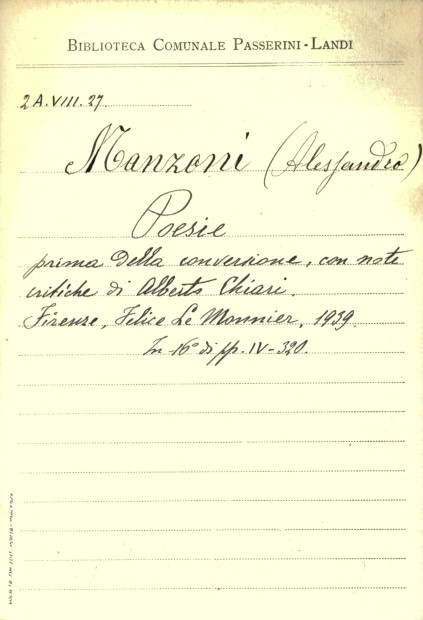 BIBLIOTECA COMUNALE PASSERINI-LANDI
2A.VIII.27
Manzoni (Alessandro)
Poesie
prima della conversione, con note
critiche di Alberto Chiari.
Firenze, Felice Le Monnier, 1939.
In 16° di pp. IV-320.